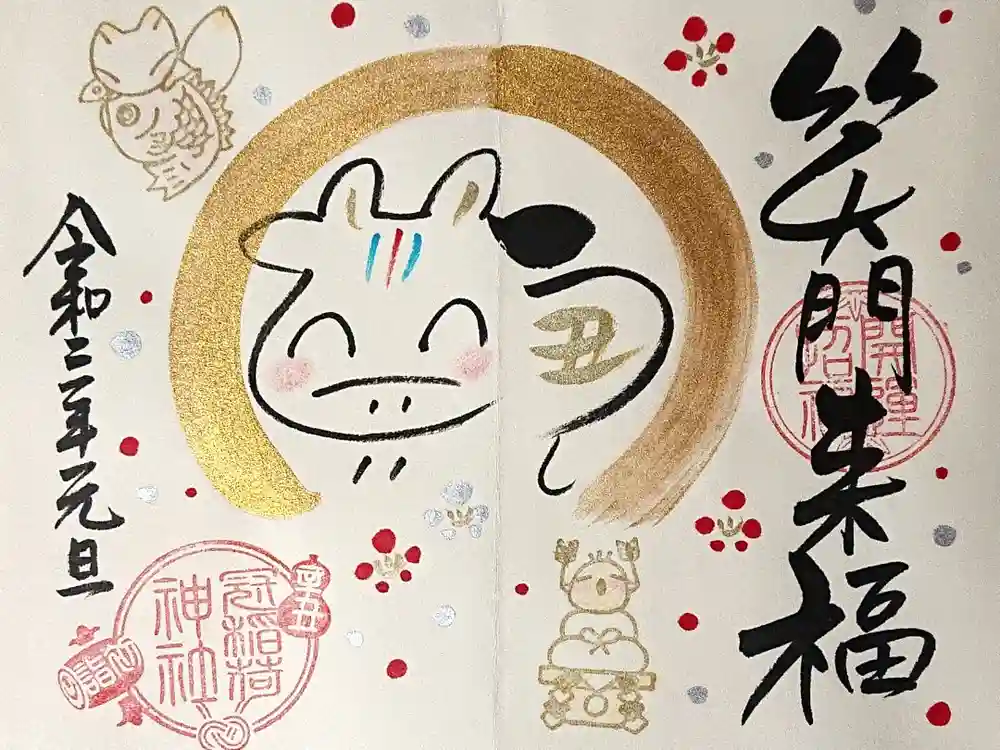 笑門来福
開運
招福
丑
令和三年元旦
冠稲荷
神社